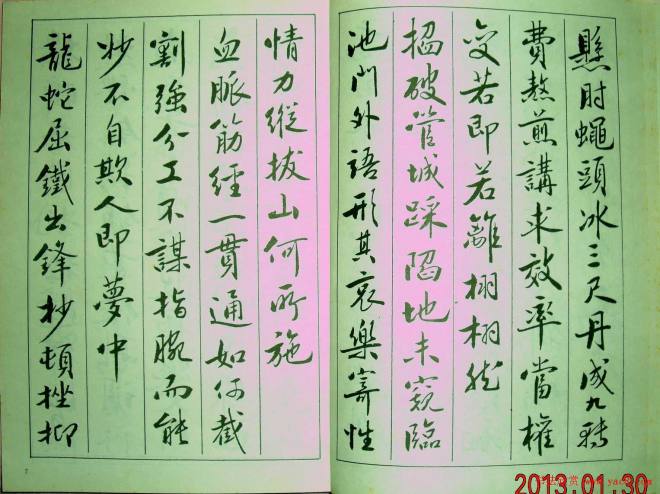 懸肘蠅頭冰三尺丹成九轉
費熬煎講求效率當權
變若即若離栩栩然
搦破管城踩陷地未窺臨
池門外語形其哀樂寄性
情力縱拔山何所施
血脈筋經一貫通如何截
割強分工不謀指腕而能
妙不自欺人即夢中
龍蛇屈鐵出鋒杪頓挫抑
7
2013.01.30